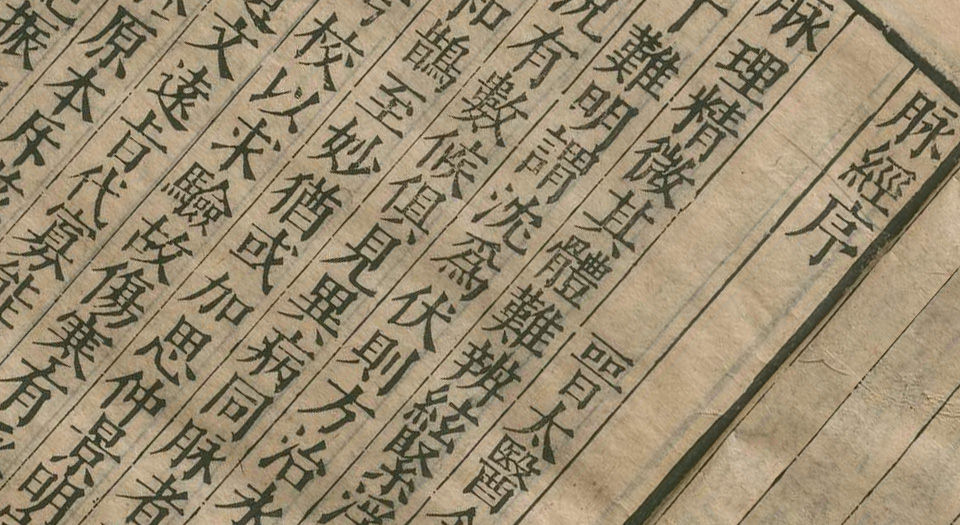 脉經序
晉太醫
脉理精微其體難辨絃緊浮
難明謂沈爲伏則方治永
況有數候俱見異病同脉者
和鵲至妙猶或加思仲景明
校以求驗故傷寒有
文遠旨代寡能
原本斥
振